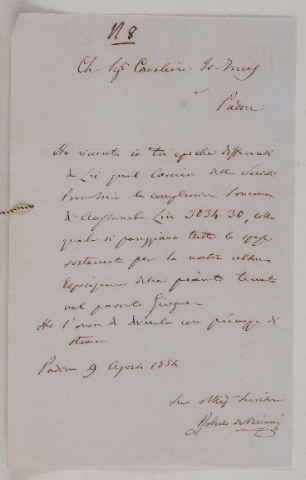 N 8
Ch. Sigr Cavaliere
Padova
Ho ricevuto in tre epoche differenti
da Lei qual Cassiere della Società
Promotrice la complessiva somma
di Austriache Lire 3034.30, colle
quali si pareggiano tutte le spese
sostenute per la nostra ultima
Esposizione delle piante tenuta
nel passato Giugno
Ho l'onore di dirmela con pienezza di
stima
Padova 9 Agosto 1854
Suo Servitore
Roberto de Visiani